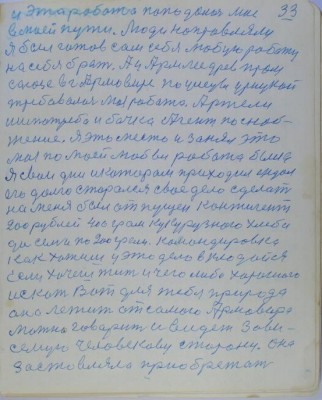 и эта работа попадалась мне 33
в моей пути. Люди направляли
я был готов сам себя любую работу
на себя брат. А в Армавире пром
в г Армавире по улицы урицкой
требовался моя работа. Артели
агент по снаб-
жение. Я это место и занял это
моя по моей любви работа была
Я свои дни и котором приходил
его долго старался свое дело сделат
на меня был отпущен контингент
200 рублей 400 грам кукурузного хлеба
да сем и по 200 грам. командировка
как хотиш у это дело
если хочеш жит и чего либо хорошого
искат Вот для тебя природа
она лежит от самого Армавира
можно говорит и видет Зави-
семую человекову сторону. она
заставляла приобретат